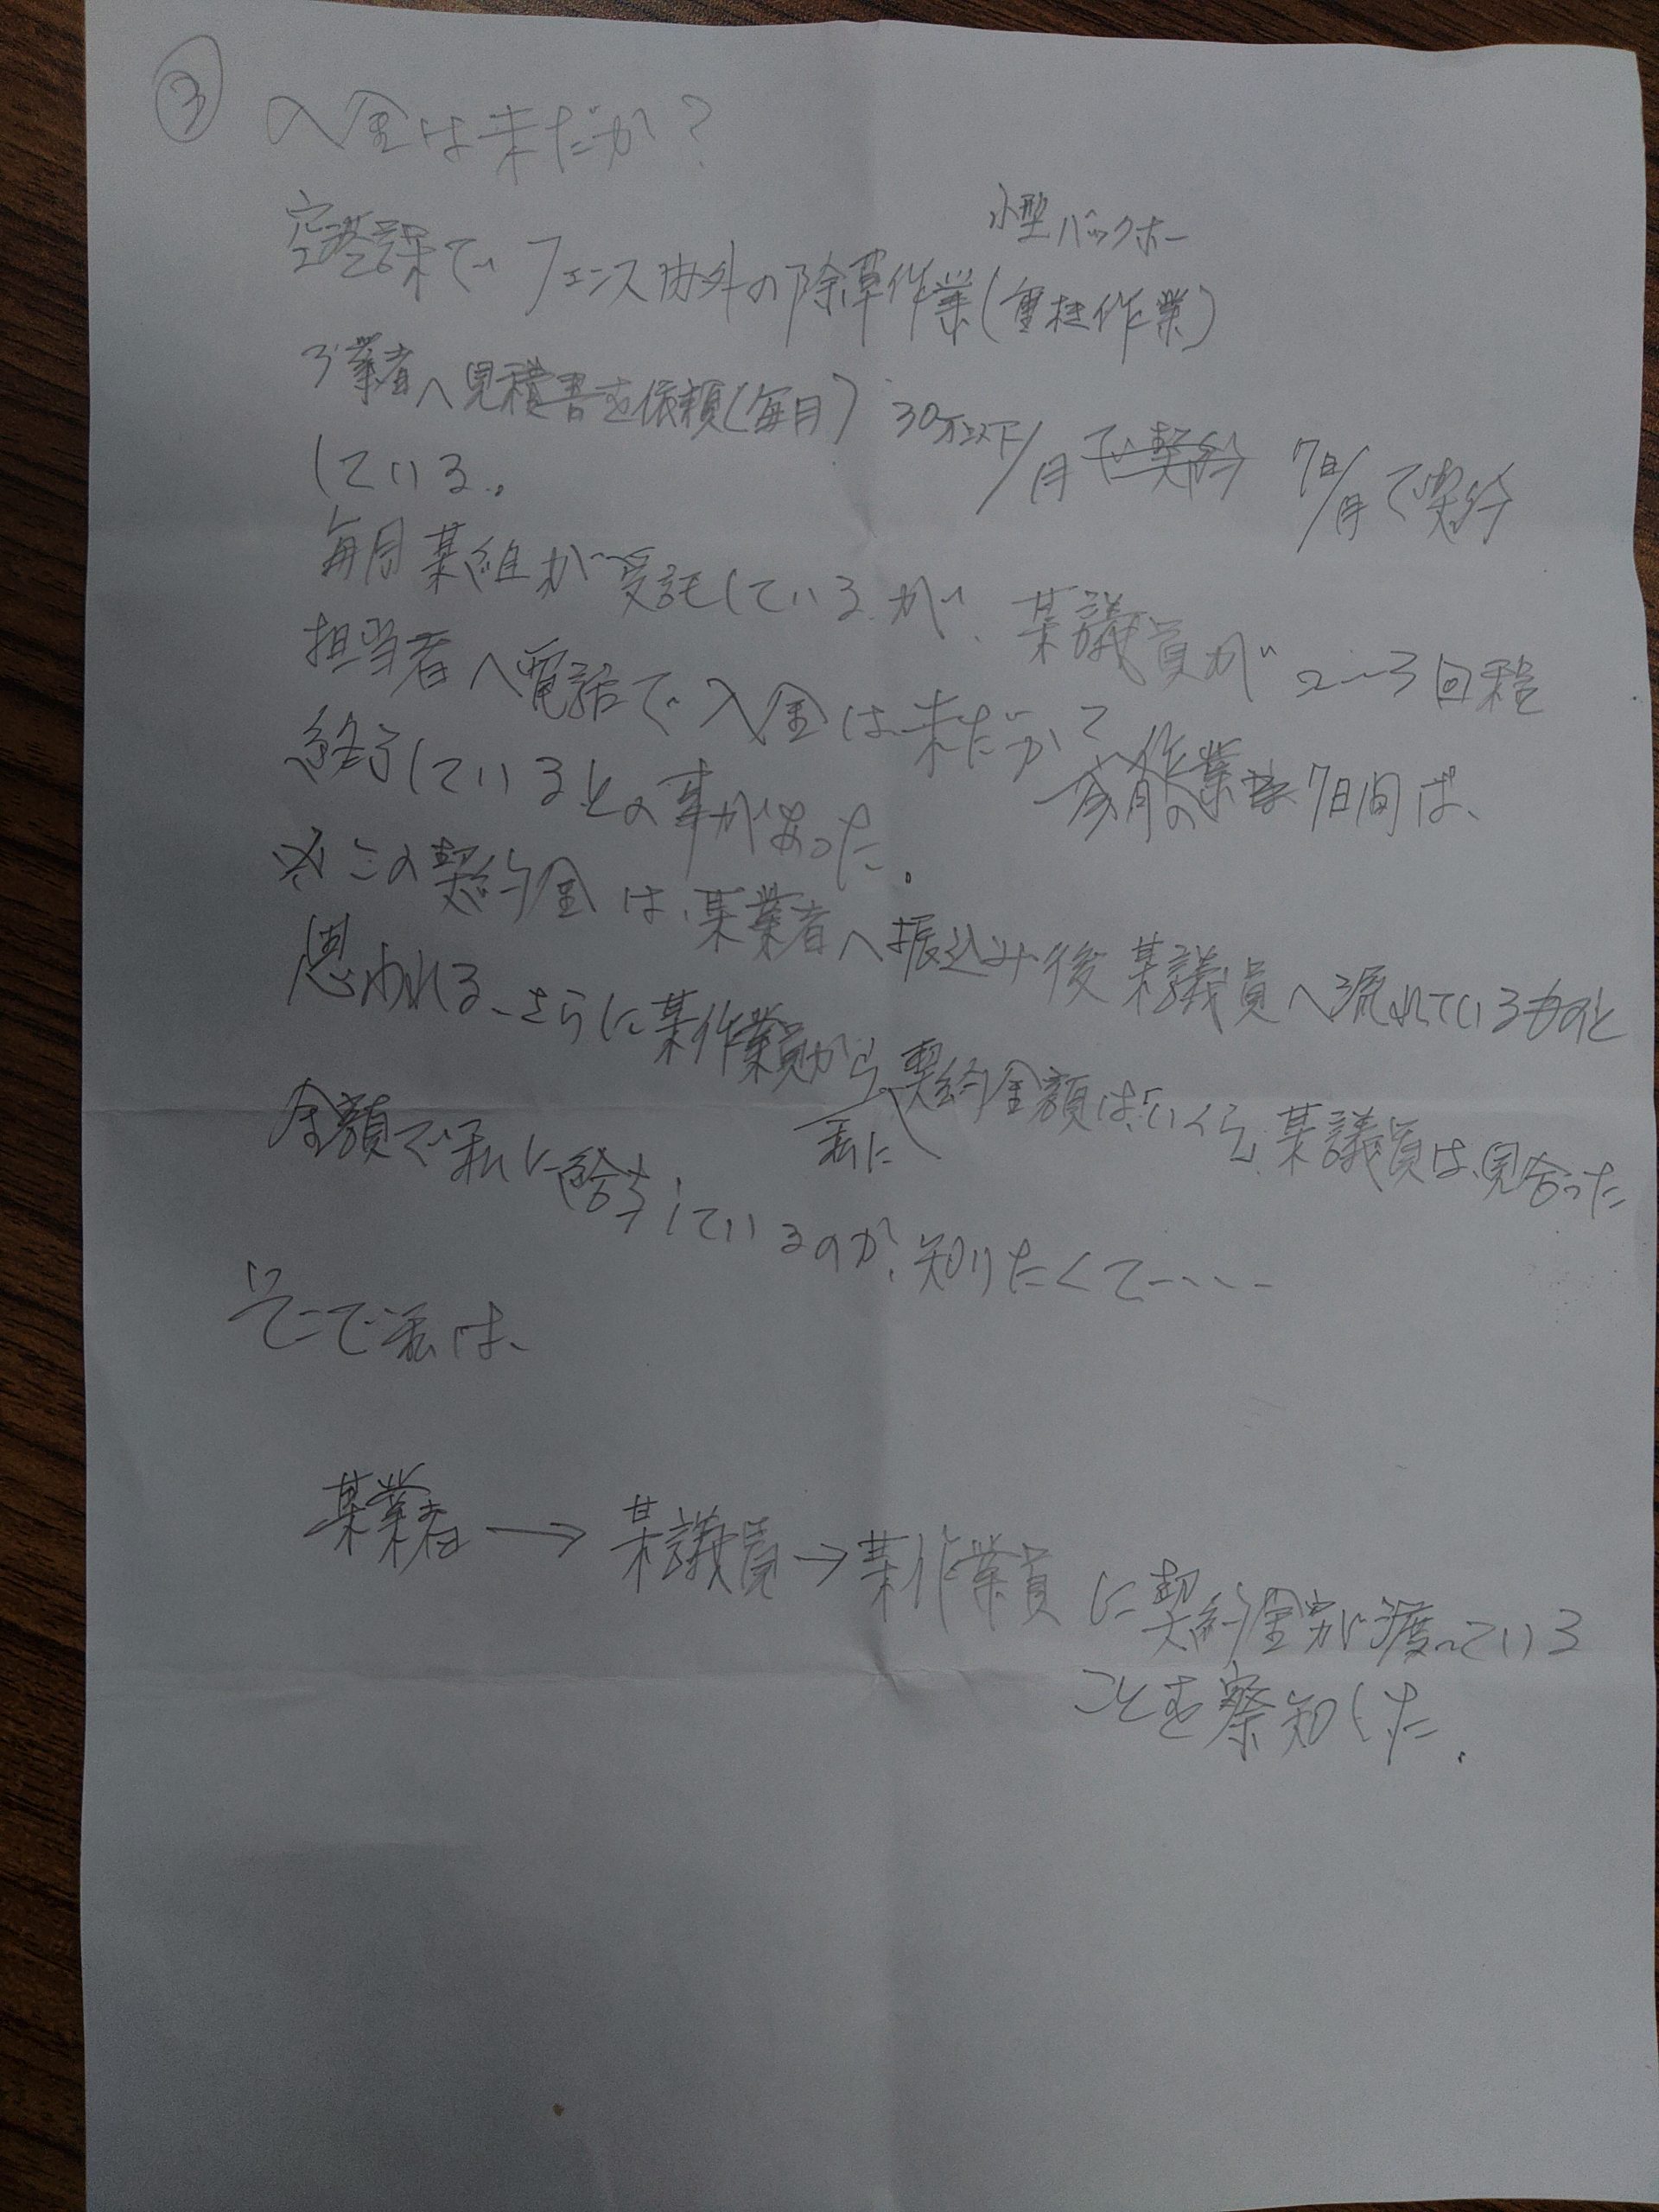 ③ 入金は未だか？
小型バックホー
空港課でフェンス内外の除草作業(重機作業)
3業者へ見積書を依頼(毎月) 30万以下/月 で契約 7日/月で契約
している。
毎月某組が受託しているが、某議員が2〜3回程
担当者へ電話で入金は未だかて
毎月の作業 7日間は、
終了しているとの事があった。
※この契約金は、某業者へ振込み後某議員へ流れているものと
思われる、さらに某作業員から、契約金額は「いくら」某議員は、見合った
私に
金額で私に給与しているのか、知りたくて----
そこで私は、
某業者→某議員→某作業員に契約金が渡っている
ことを察知した。